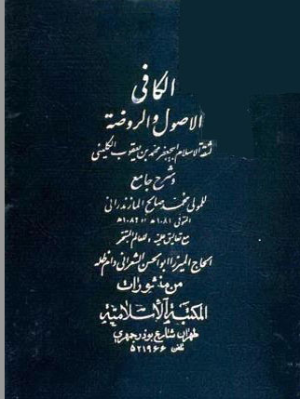 الكافى
الاصول والروضة
لثقة الاسلام ابيجعفر محمد بن يعقوب الكلينى
وشرح جامع
للمولى محمد صالح المازندرانى
المتوفى ١٠٨١ هـ او ١٠٨٦
مع تعاليق علميه للعالم المتبحر
الحاج الميرزا ابو الحسن الشعرانى دام ظله
من منشورات
المكتبة الاسلامية
طهران شارع بوذرجمهرى
تلفن ٥٢١٩٦٦